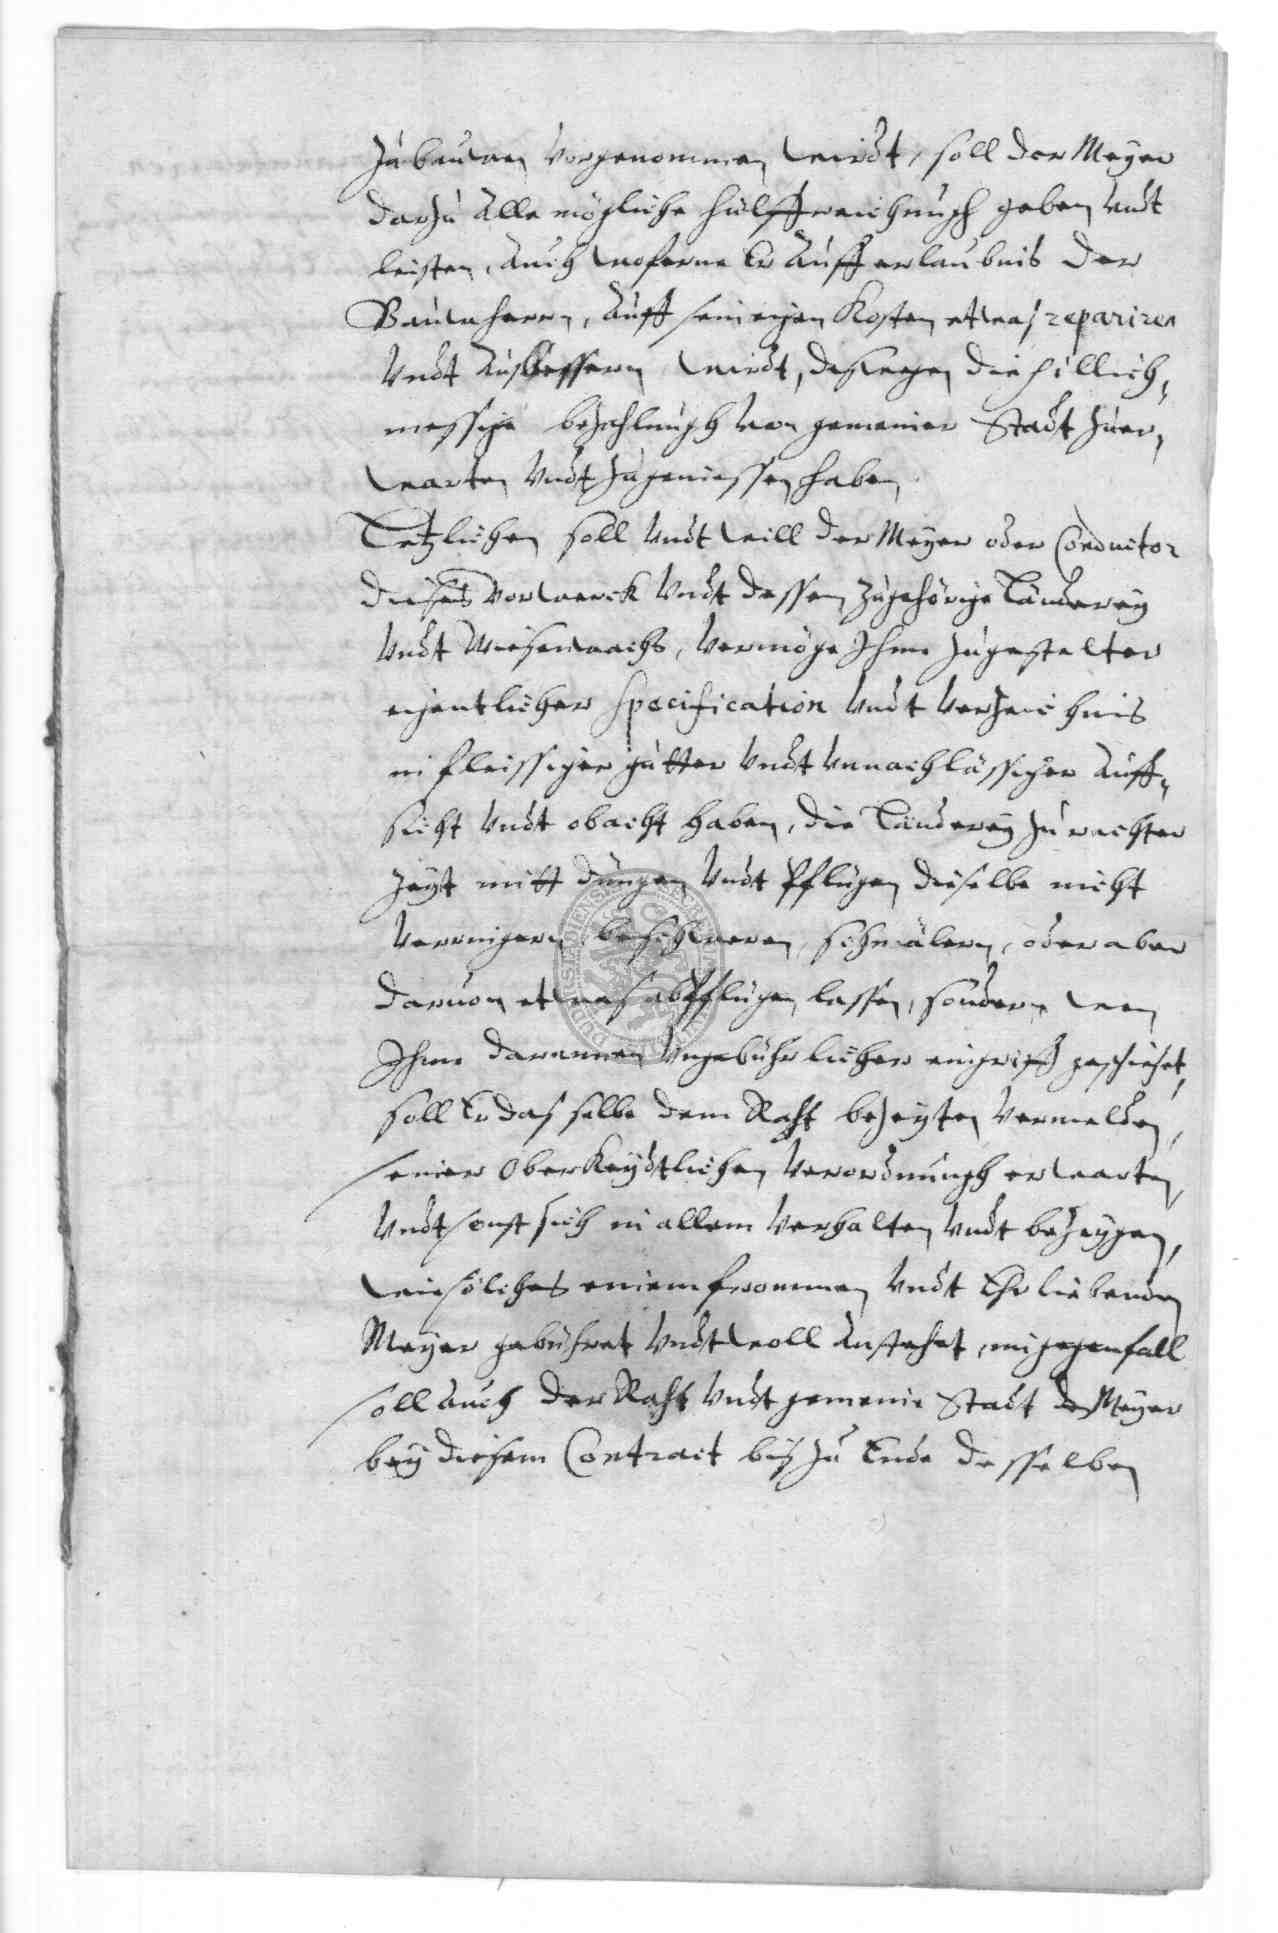 zubauwen vorgenommen wirdt, soll der Meyer
darzu alle mögliche hülffreichungh geben vndt
leisten, Auch woferne Er Auff erlaubnis der
Bauwherrn, Auff sein eigen Kosten etwas repariren
vndt Außbessern wirdt, deßwegen die pillich,
messige bezahlungh von gemeiner Stadt zuer,
warten vndt zugeniessen haben.
Letzlichen soll vndt will der Meyer oder Conductor
dieses Vorwerck vndt dessen zugehörige Länderey
vndt Wiesenwachs, vermöge Ihme zugestelter
eigentlicher Specification vndt Verzeichnis
in fleissiger gutter vndt vnnachlässiger Auff,
sicht vndt obacht haben, die Länderey zu rechter
zeyt mitt düngen vndt Pflügen dieselbe nicht
verringern, beschweren, schmälern, oder aber
daruon etwas abpflügen lassen, sondern wen
Ihme darannen vngebührlicher eingriff geschiehet,
soll Er dasselbe dem Raht bezeyten vermelden,
seiner Oberkeydtlichen verordnungh erwarten,
vndt sonst sich in allem verhalten vndt bezeygen,
wie solches einem frommen vndt Ehrliebenden
Meyer gebühret vndt woll Anstehet, ingegenfall
soll auch der Raht vndt gemeine Stadt den Meyer
bey diesem Contract biß zu Ende desselben